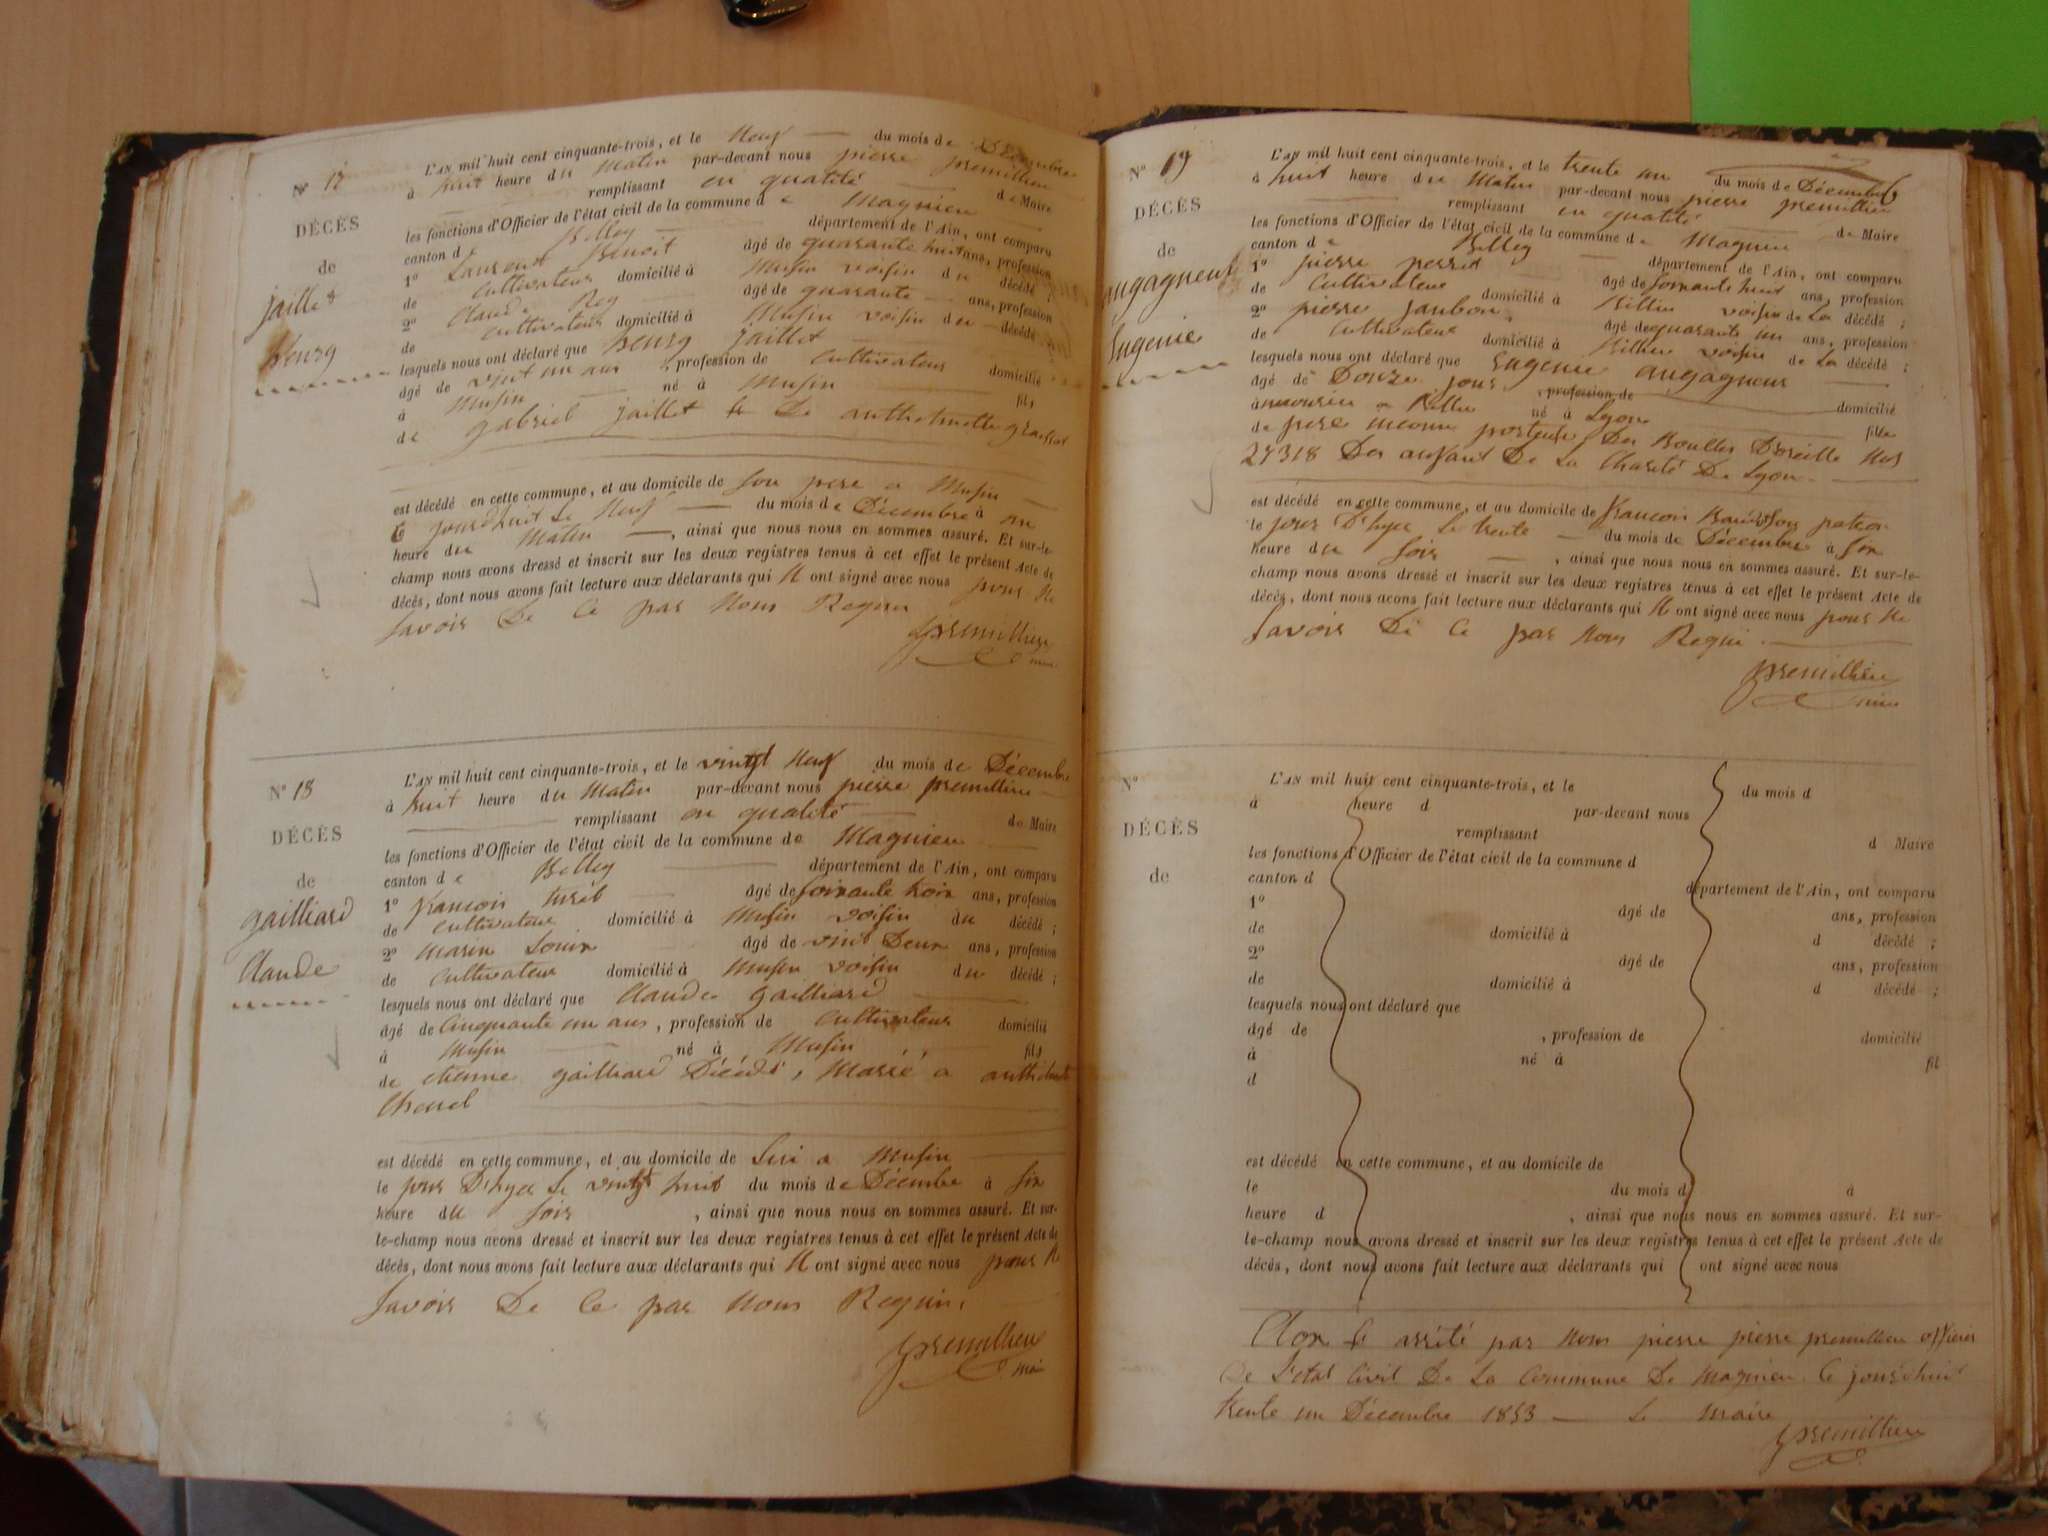 N° 17
DÉCÈS
de
jaillet
henry
L'AN mil huit cent cinquante-trois, et le Neuf du mois de Décembre
à huit heure du Matin par-devant nous pierre premillieu
remplissant en qualité de Maire
les fonctions d'Officier de l'état civil de la commune de Magnieu
canton de Belley département de l'Ain, ont comparu
1° Laurent Benoit âgé de quarante huit ans, profession
de cultivateur domicilié à Musin voisin du décédé ;
2° Claude Rey âgé de quarante ans, profession
de cultivateur domicilié à Musin voisin du décédé
lesquels nous ont déclaré que henry jaillet
âgé de vint un ans, profession de cultivateur domicilié
à Musin né à Musin fils
de gabriel jaillet & De anthelmette
est décédé en cette commune, et au domicile de son pere a Musin
le jourdhuit Le Neuf du mois de Décembre à un
heure du Matin, ainsi que nous nous en sommes assuré. Et sur-le-
champ nous avons dressé et inscrit sur les deux registres tenus à cet effet le présent Acte de
décès, dont nous avons fait lecture aux déclarants qui N ont signé avec nous pour Ne
savoir De Ce par Nous Requi
premillieu
maire
N° 18
DÉCÈS
de
gailliard
Claude
L'AN mil huit cent cinquante-trois, et le vingt Neuf du mois de Décembre
à huit heure du Matin par-devant nous pierre premillieu
remplissant en qualité de Maire
les fonctions d'Officier de l'état civil de la commune de Magnieu
canton de Belley département de l'Ain, ont comparu
1° francois âgé de soixante trois ans, profession
de cultivateur domicilié à Musin voisin du décédé ;
2° Marin Louis âgé de vint Deux ans, profession
de cultivateur domicilié à Musin voisin du décédé ;
lesquels nous ont déclaré que Claude gailliard
âgé de Cinquante un ans, profession de cultivateur domicilié
à Musin né à Musin fils
de etienne gailliard Décédé, Marié a
est décédé en cette commune, et au domicile de Lui a Musin
le jour D'hyer Le vingt huit du mois de Décembre à six
heure du soir, ainsi que nous nous en sommes assuré. Et sur-
le-champ nous avons dressé et inscrit sur les deux registres tenus à cet effet le présent Acte de
décès, dont nous avons fait lecture aux déclarants qui N ont signé avec nous pour N
savoir De Ce par Nous Requi
premillieu
mai
N° 19
DÉCÈS
de
augagneur
Eugenie
L'AN mil huit cent cinquante-trois, et le trente un du mois de Décembre
à huit heure du Matin par-devant nous pierre premillieu
remplissant en qualité de Maire
les fonctions d'Officier de l'état civil de la commune de Magnieu
canton de Belley département de l'Ain, ont comparu
1° pierre perret âgé de soixante huit ans, profession
de Cultivateur domicilié à Billieu voisin de La décédé ;
2° pierre jambon âgé de quarante un ans, profession
de Cultivateur domicilié à Billieu voisin de La décédé ;
lesquels nous ont déclaré que Eugenie augagneur
âgé de Douze jours, profession de domicilié
à nourice a Billieu né à Lyon fille
de pere inconnu porteuse Des Boulles D'oreille No
27318 Des anfant De La Charité De Lyon
est décédé en cette commune, et au domicile de francois
le jour D'hyer Le trente du mois de Décembre à six
heure du soir, ainsi que nous nous en sommes assuré. Et sur-le-
champ nous avons dressé et inscrit sur les deux registres tenus à cet effet le présent Acte de
décès, dont nous avons fait lecture aux déclarants qui N ont signé avec nous pour Ne
savoir De Ce par Nous Requi
premillieu
maire
N°
DÉCÈS
de
L'AN mil huit cent cinquante-trois, et le du mois d
à heure d par-devant nous
remplissant d Maire
les fonctions d'Officier de l'état civil de la commune d
canton d département de l'Ain, ont comparu
1° âgé de ans, profession
de domicilié à d décédé ;
2° âgé de ans, profession
de domicilié à d décédé ;
lesquels nous ont déclaré que
âgé de, profession de domicilié
à né à fil
d
est décédé en cette commune, et au domicile de
le du mois d à
heure d, ainsi que nous nous en sommes assuré. Et sur-
le-champ nous avons dressé et inscrit sur les deux registres tenus à cet effet le présent Acte de
décès, dont nous avons fait lecture aux déclarants qui ont signé avec nous
Clos & arrété par Nous pierre pierre premillieu officier
De L'etat Civil De La Commune De Magnieu Ce jourdhui
trente un Décembre 1853 Le Maire
premillieu